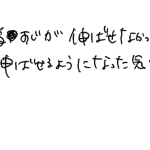 あじが伸ばせなかっ
伸ばせるようになった気